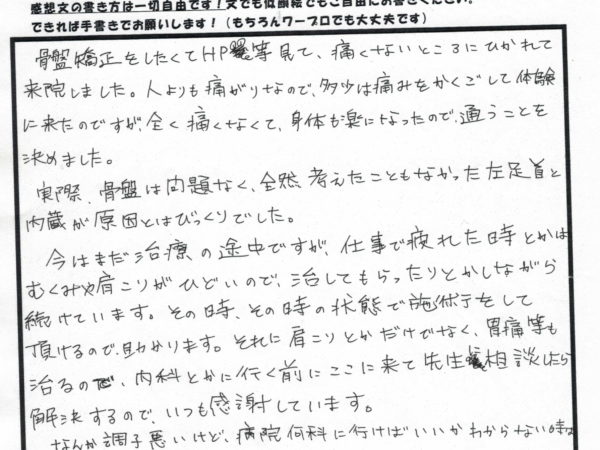 感想文の書き方は一切自由です！文でも似顔絵でもご自由にお書きください。
できれば手書きでお願いします！（もちろんワープロでも大丈夫です）
骨盤矯正をしたくてHP等見て、痛くないところにひかれて
来院しました。人よりも痛がりなので、多少は痛みをかくごして体験
に来たのですが、全く痛くなくて、身体も楽になったので、通うことを
決めました。
実際、骨盤は問題なく、全然考えたこともなかった左足首と
内蔵が原因とはびっくりでした。
今はまだ治療の途中ですが、仕事で疲れた時とかは
むくみや肩こりがひどいので、治してもらったりとかしながら
続けています。その時、その時の状態で施術をして
頂けるので、助かります。それに肩こりとかだけでなく、胃痛等も
治るので、内科とかに行く前にここに来て先生に相談したら
解決するので、いつも感謝しています。
なんか調子悪いけど、病院何科に行けばいいかわからない時は